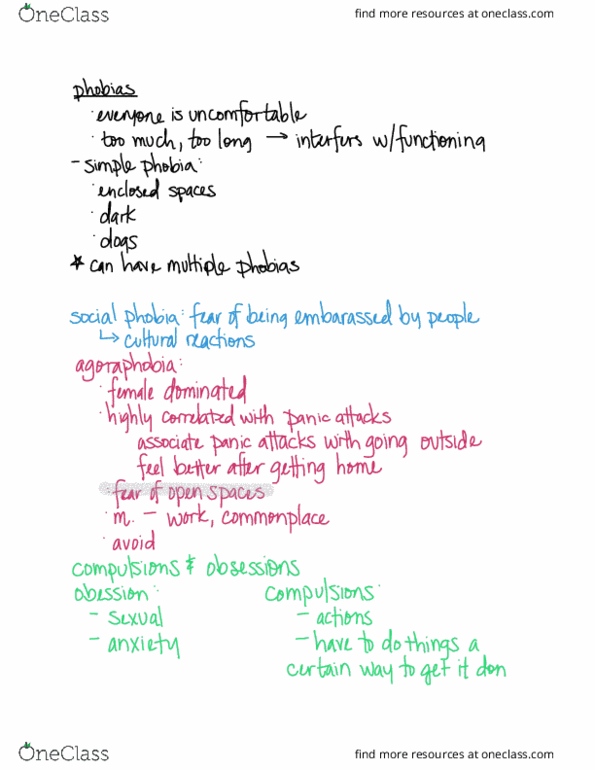 OneClass
find more resources at oneclass.com
phobias
· everyone is uncomfortable
· too much, too long → interfers w/functioning
- simple phobia:
· enclosed spaces
· dark
· dogs
* can have multiple phobias
social phobia: fear of being embarassed by people
↳ cultural reactions
agoraphobia:
· female dominated
· highly correlated with panic attacks
associate panic attacks with going outside
feel better after getting home
· fear of open spaces
· m. - work, commonplace
· avoid
compulsions & obsessions
obession:
- sexual
- anxiety
compulsions:
- actions
- have to do things a
certain way to get it don
OneClass
find more resources at oneclass.com